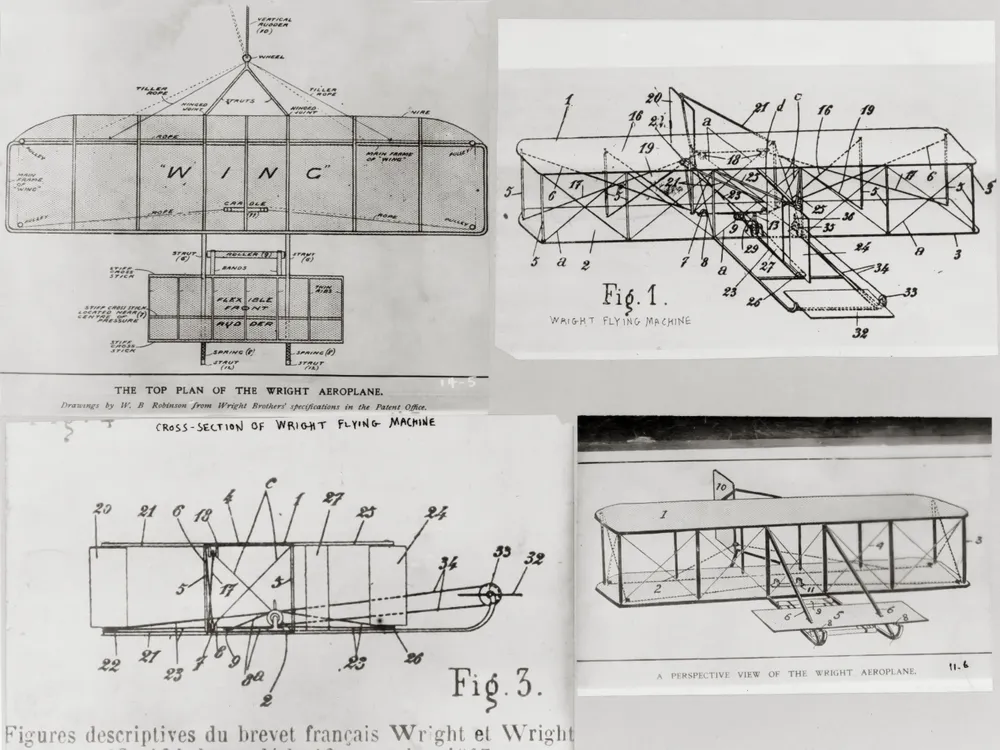 VERTICAL
RUDDER
(10)
WHEEL
TILLER
ROPE
TILLER
ROPE
HINGED
JOINT
STRUTS
HINGED
JOINT
WIRE
ROPE
PULLEY
PULLEY
MAIN FRAME
OF "WING"
"WING"
MAIN
FRAME
OF
"WING"
CRADLE
(11)
ROPE
ROPE
PULLEY
PULLEY
STRUT
(6)
ROLLER (9)
STRUT
(6)
BANDS
STIFF
CROSS
STICK
THIN
RIBS
STIFF CROSS STICK
LOCATED NEAR
CENTRE OF
PRESSURE (7)
FLEXIBLE
FRONT
RUDDER
STIFF
CROSS
STICK
SPRING (8)
SPRING (8)
STRUT
(12)
STRUT
(12)
14-5
THE TOP PLAN OF THE WRIGHT AEROPLANE.
Drawings by W. B Robinson from Wright Brothers' specifications in the Patent Office.
1
20
16
21
a
d
c
21
16
19
19
18
6
17
5
5
6
17
5
5
25
25
36
35
5
a
2
7
8
a
9
29
13
27
23
26
24
34
a
3
33
32
Fig. 1.
WRIGHT FLYING MACHINE
CROSS-SECTION OF WRIGHT FLYING MACHINE
20
21
6
18
4
C
1
27
25
24
5
17
5
34
33
32
22
21
23
7
6
9
8
a
2
23
26
Fig. 3.
Figures descriptives du brevet français Wright et Wright
10
1
2
4
3
11
6
9
5
6
8
8
A PERSPECTIVE VIEW OF THE WRIGHT AEROPLANE.
11.6